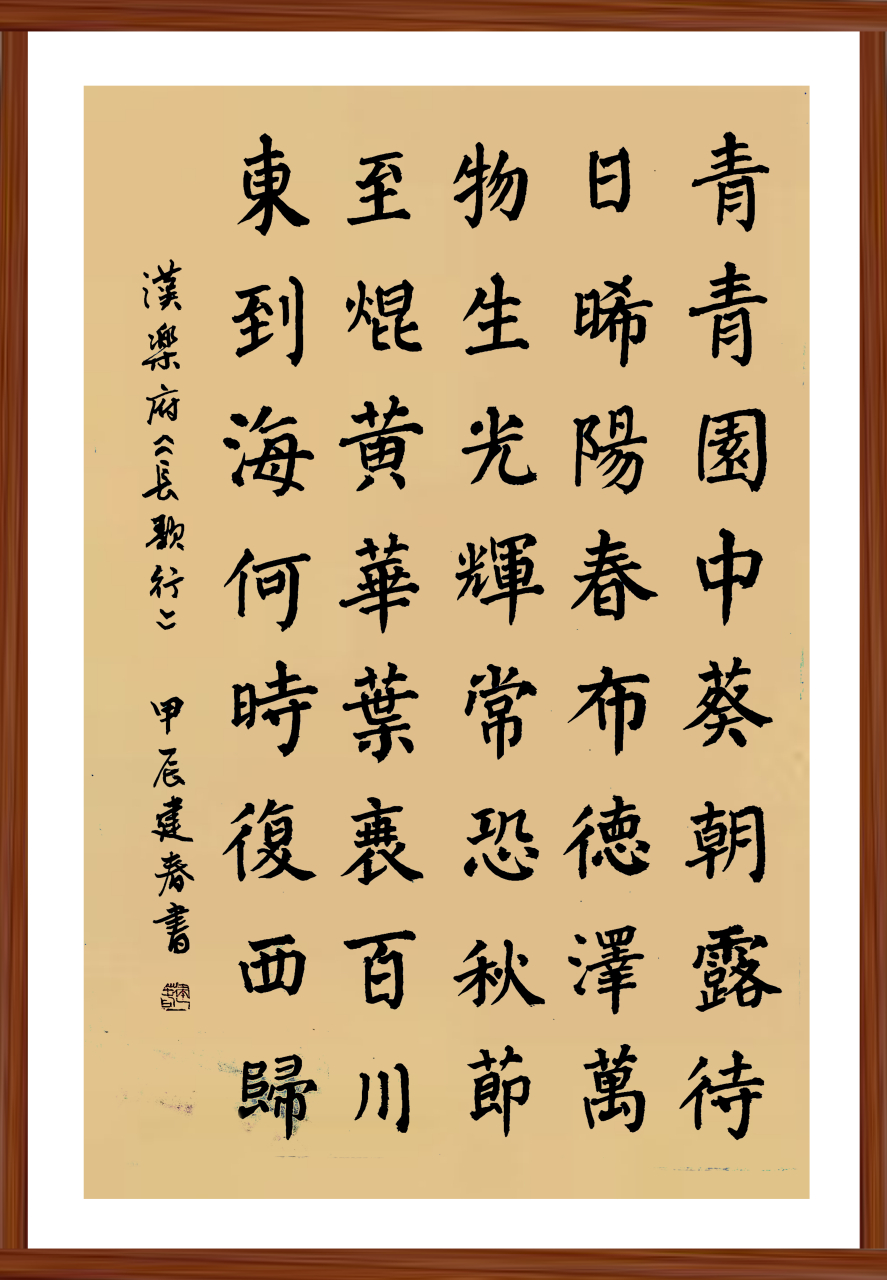 青青園中葵朝露待
日晞陽春布德澤萬
物生光輝常恐秋節
至焜黄華葉衰百川
東到海何時復西歸
漢樂府《長歌行》 甲辰建春書